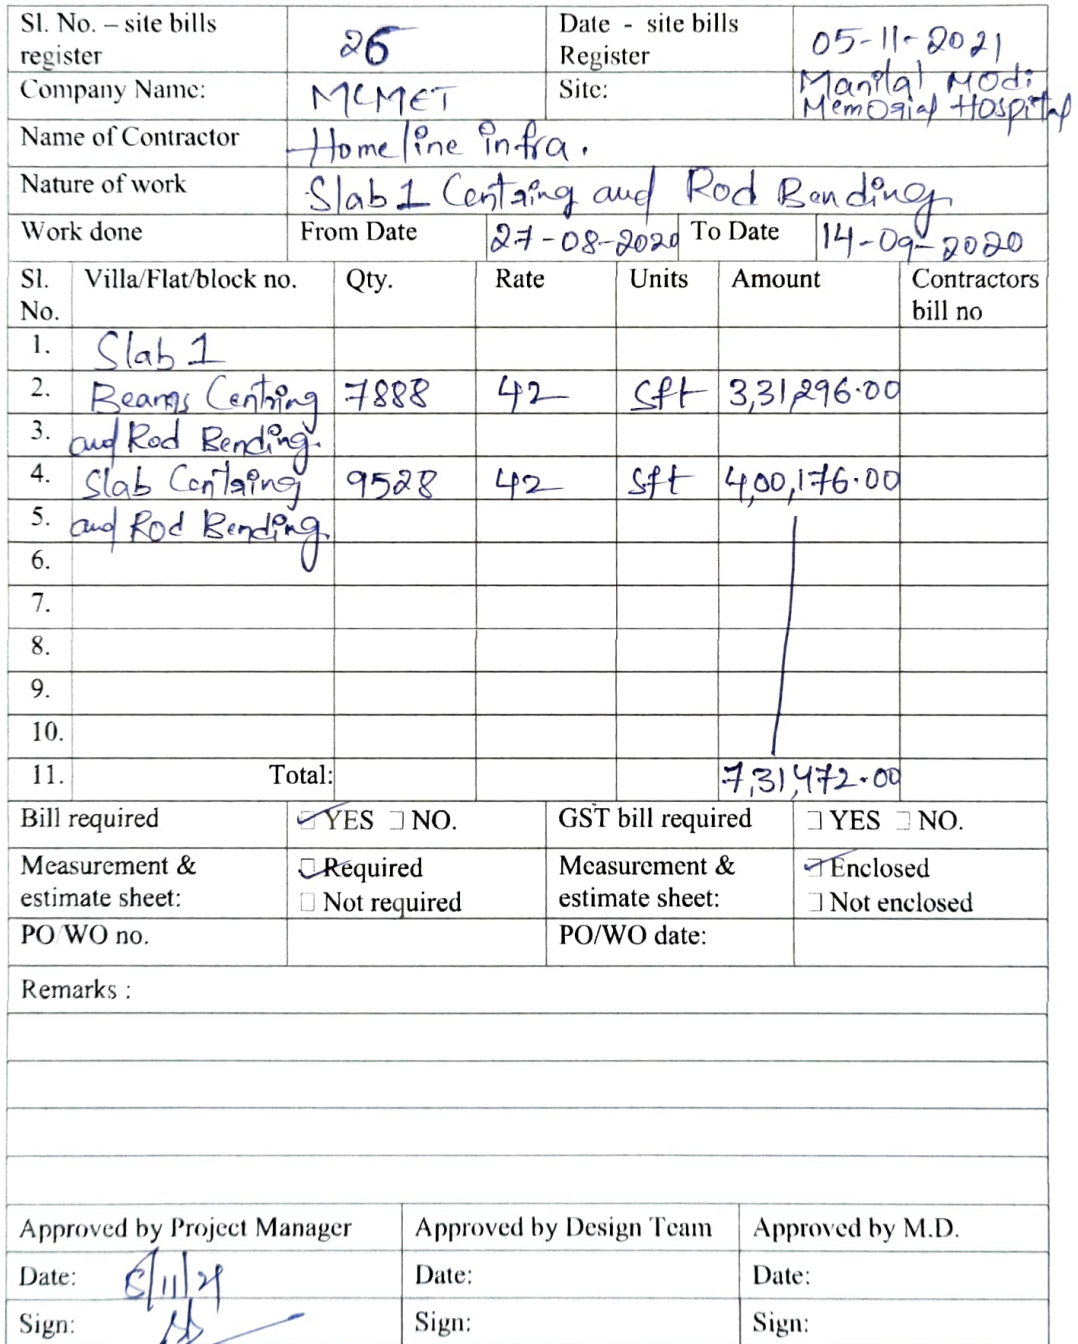 Sl. No. – site bills register 26 Date - site bills Register 05-11-2021
Company Name: MCMET Site: Manilal Modi Memorial Hospital
Name of Contractor Homeline infra.
Nature of work Slab 1 Centring and Rod Bending
Work done From Date 27-08-2020 To Date 14-09-2020
Sl. No. Villa/Flat/block no. Qty. Rate Units Amount Contractors bill no
1. Slab 1
2. Beams Centring 7888 42 sft 3,31,296.00
3. and Rod Bending.
4. Slab Centring 9528 42 sft 4,00,176.00
5. and Rod Bending.
6.
7.
8.
9.
10.
11. Total: 7,31,472.00
Bill required YES NO. GST bill required YES NO.
Measurement & estimate sheet: Required Not required Measurement & estimate sheet: Enclosed Not enclosed
PO/WO no. PO/WO date:
Remarks :
Approved by Project Manager Approved by Design Team Approved by M.D.
Date: 5/11/21 Date: Date:
Sign: Sign: Sign: